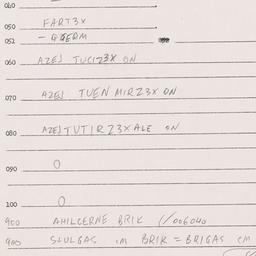 040
050 FART3X
051 - GGERM
060 AZEJ TUCIZ3X ON
070 AZEJ TUEN MIRZ3X ON
080 AZEJ TUTIRZ3XALE ON
090 0
100 0
900 AHILCERNE BRIK 1/006040
900 SLULGAS IM BRIK = BRIGAS CM